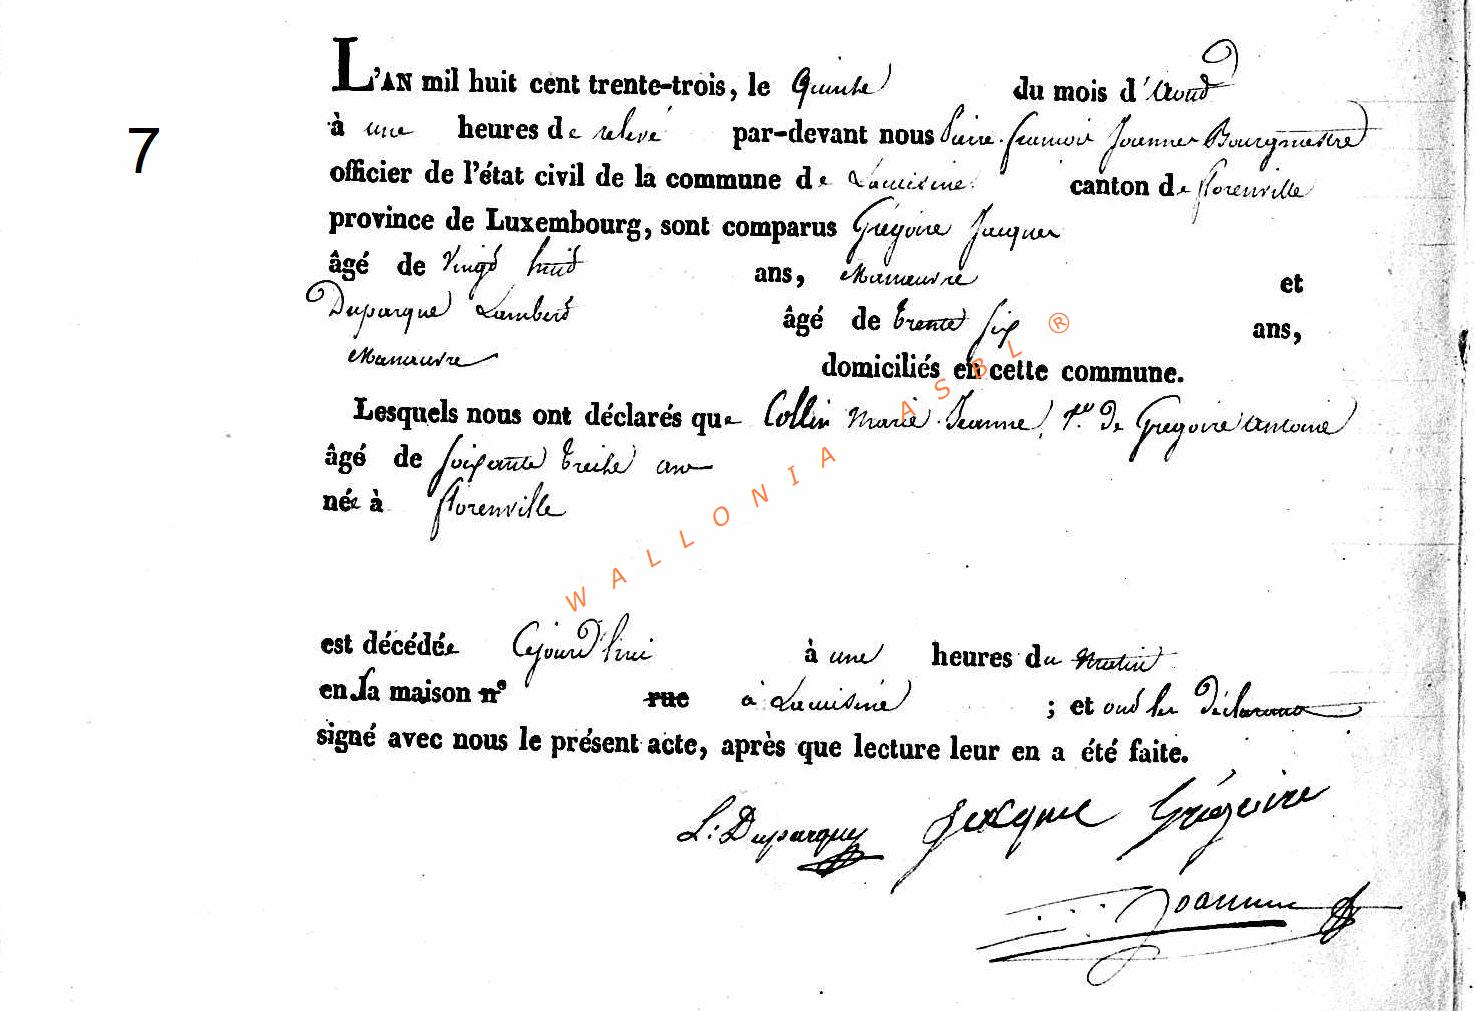 L'AN mil huit cent trente-trois, le Quinze du mois d'Aoud
7
à une heures de relevé par-devant nous Pierre françois Joannes Bourgmestre
officier de l'état civil de la commune de Lacuisine canton de florenville
province de Luxembourg, sont comparus Grégoire Jacques
âgé de Vingd huid ans, Manœuvre et
Duparque Lamberd âgé de trente six ans,
Manœuvre domiciliés en cette commune.
Lesquels nous ont déclarés que Collin Marie Jeanne, de Gregoire Antoine
âgé de soixante treize ans
née à florenville
est décédée Cejourd'hui à une heures du Matin
en sa maison n° rue à Lacuisine ; et ond les Déclarans
signé avec nous le présent acte, après que lecture leur en a été faite.
L: Duparque Jacque Grégoire
Joannes
WALLONIA ASBL ®